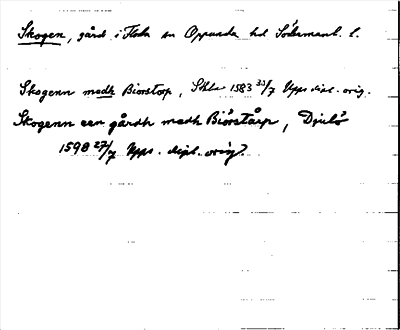 Skogen, gård i Floda sn Oppunda hd Södermanl. l.
Skogenn medh Biorstorp, Sthlm 1583 30/7 Upps dipl. orig.
Skogenn een gårdh medh Biörstårp, Djulö
1598 27/7 Upps. dipl. orig.